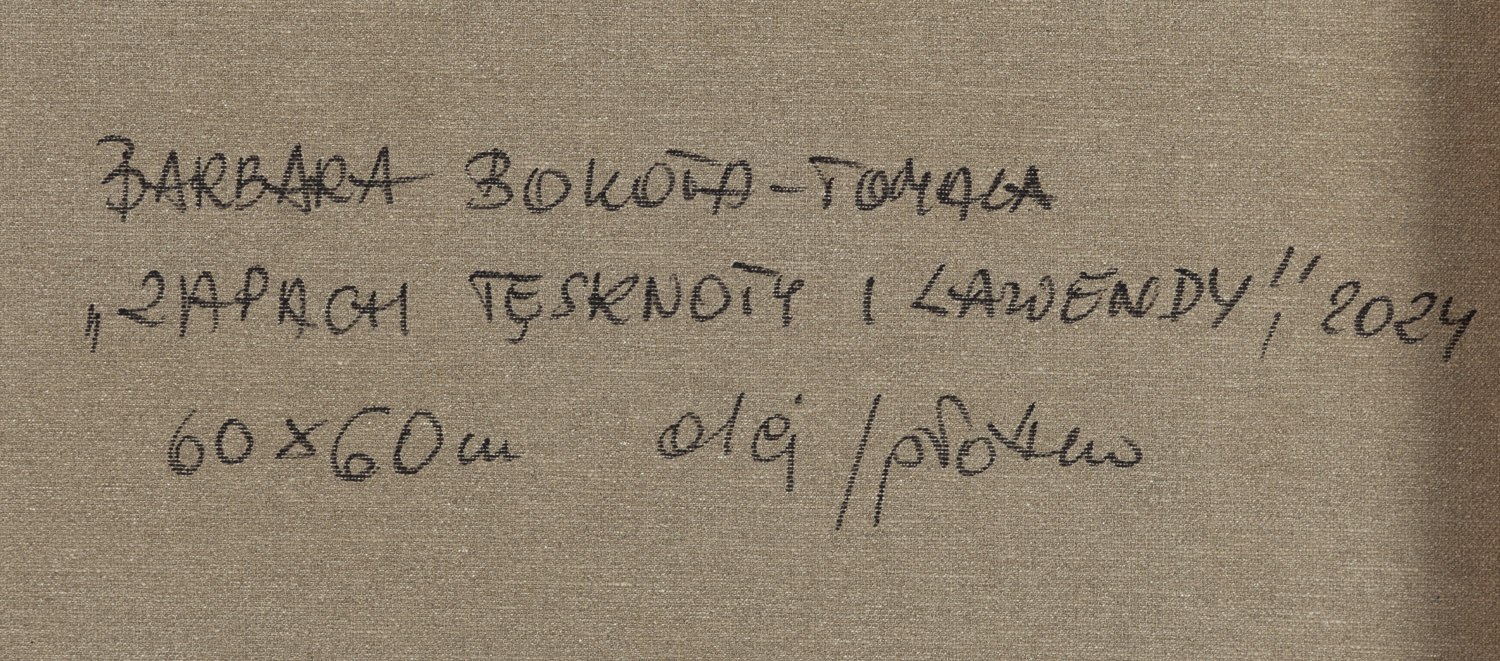 BARBARA BOKOTA-TOMALA
„ZAPACH TĘSKNOTY I LAWENDY”, 2024
60x60cm olej/płótno